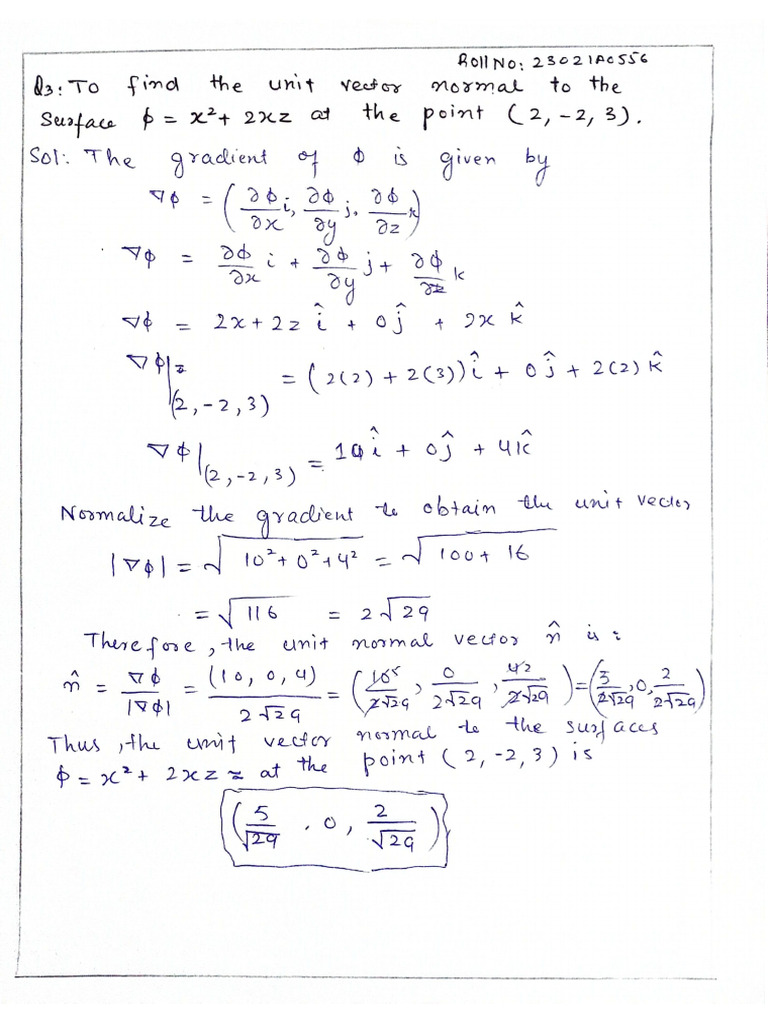 Roll No: 23021A0556
Q3: To find the unit vector normal to the
surface ϕ = x² + 2xz at the point (2, -2, 3).
Sol: The gradient of ϕ is given by
∇ϕ = (∂ϕ/∂x i, ∂ϕ/∂y j, ∂ϕ/∂z k)
∇ϕ = ∂ϕ/∂x i + ∂ϕ/∂y j + ∂ϕ/∂z k
∇ϕ = 2x + 2z î + 0ĵ + 2x k̂
∇ϕ|(2, -2, 3) = (2(2) + 2(3))î + 0ĵ + 2(2) k̂
∇ϕ|(2, -2, 3) = 10î + 0ĵ + 4k̂
Normalize the gradient to obtain the unit vector
|∇ϕ| = √(10² + 0² + 4²) = √(100 + 16)
= √116 = 2√29
Therefore, the unit normal vector n̂ is:
n̂ = ∇ϕ/|∇ϕ| = (10, 0, 4)/2√29 = (10 5/2√29, 0/2√29, 4 2/2√29) = (5/2√29, 0, 2/2√29)
Thus, the unit vector normal to the surfaces
ϕ = x² + 2xz at the point (2, -2, 3) is
(5/√29, 0, 2/√29)